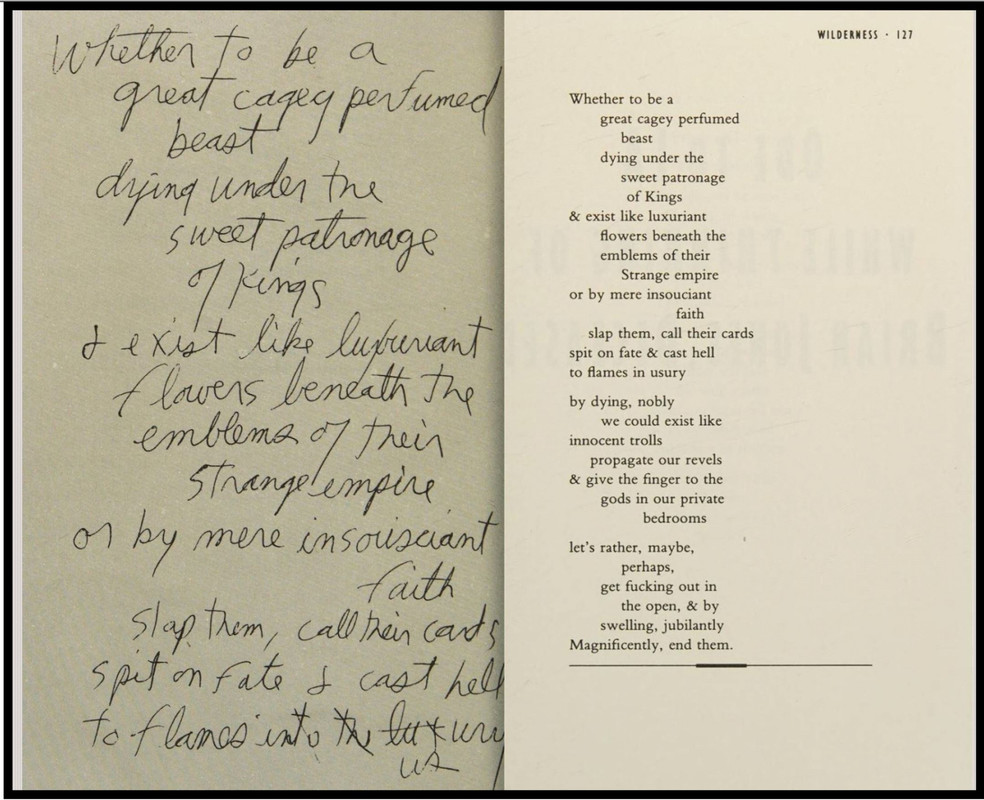 Whether to be a
great cagey perfumed
beast
dying under the
sweet patronage
of Kings
& exist like luxuriant
flowers beneath the
emblems of their
Strange empire
or by mere insouisciant
faith
slap them, call their cards
spit on fate & cast hell
to flames into the luxury
us
WILDERNESS · 127
Whether to be a
great cagey perfumed
beast
dying under the
sweet patronage
of Kings
& exist like luxuriant
flowers beneath the
emblems of their
Strange empire
or by mere insouciant
faith
slap them, call their cards
spit on fate & cast hell
to flames in usury
by dying, nobly
we could exist like
innocent trolls
propagate our revels
& give the finger to the
gods in our private
bedrooms
let's rather, maybe,
perhaps,
get fucking out in
the open, & by
swelling, jubilantly
Magnificently, end them.